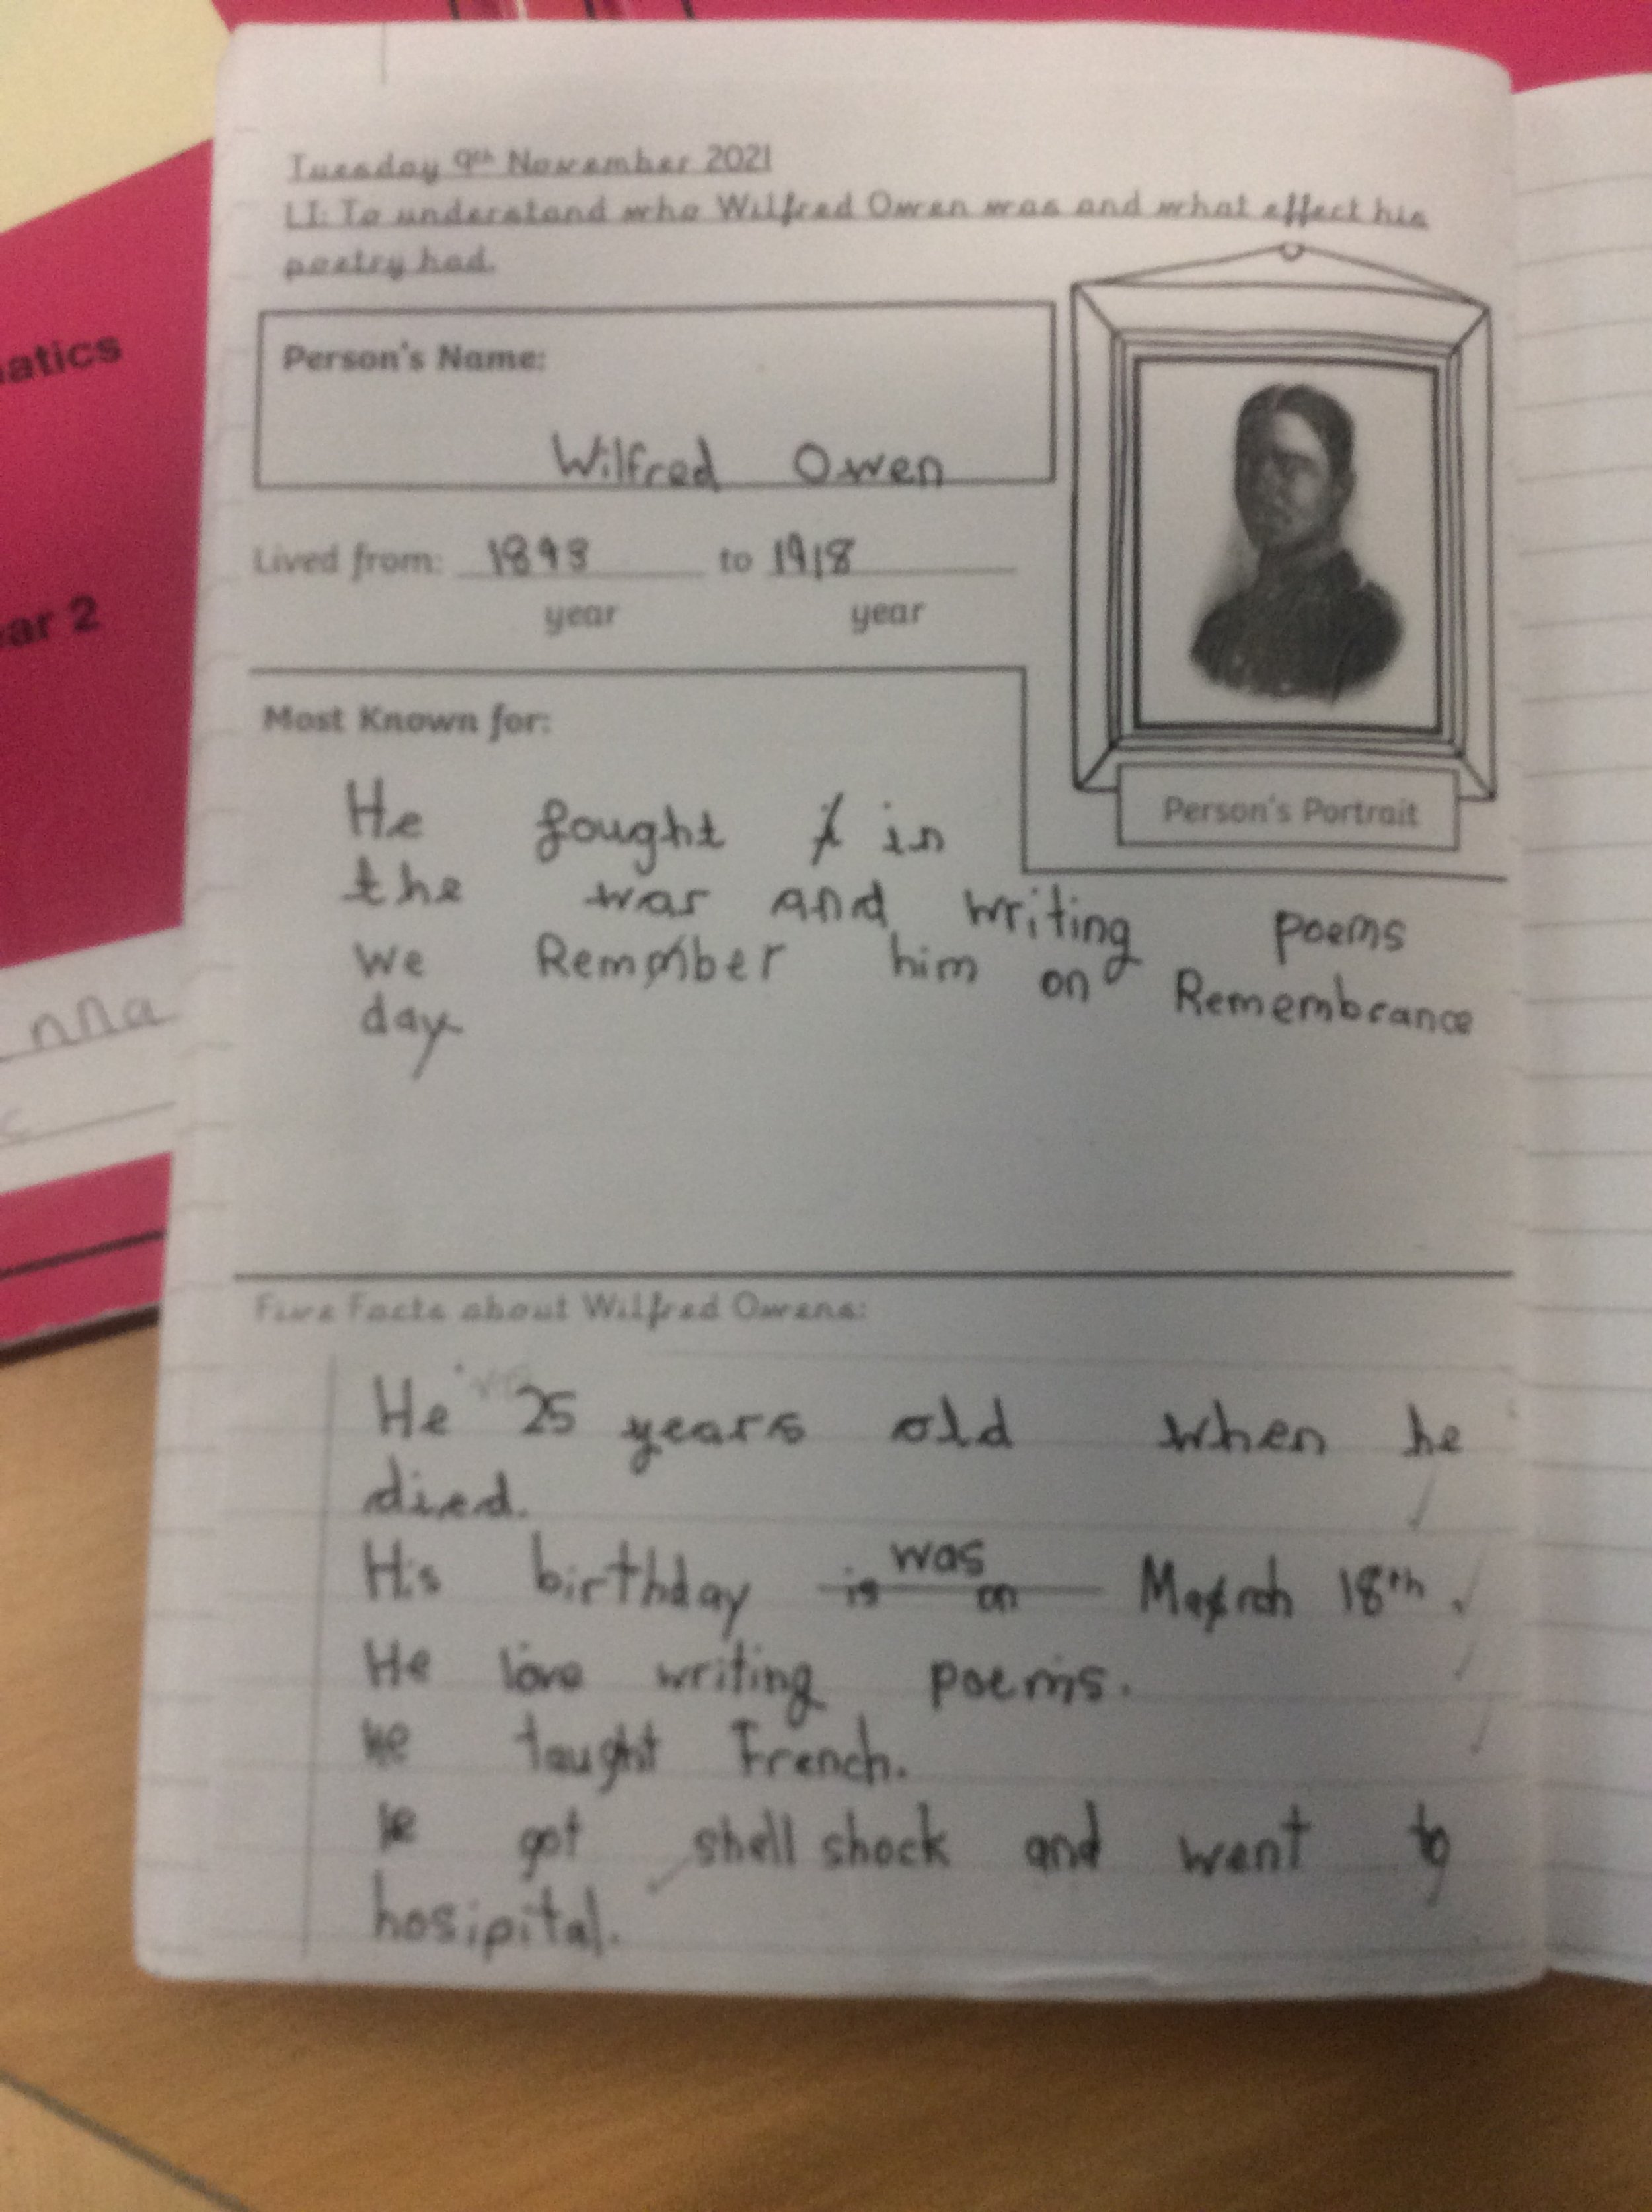 Tuesday 9th November 2021
LI: To understand who Wilfred Owen was and what effect his
poetry had.
Person's Name:
Wilfred Owen
Lived from: 1893 to 1918
year year
Most Known for:
Person's Portrait
He fought in
the war and writing poems
we Remember him on Remembrance
day
Five Facts about Wilfred Owens:
He 25 years old when he
died.
was
His birthday is on March 18th.
He love writing poems.
He taught French.
He got shell shock and went to
hosipital.
atics
ar 2
nna